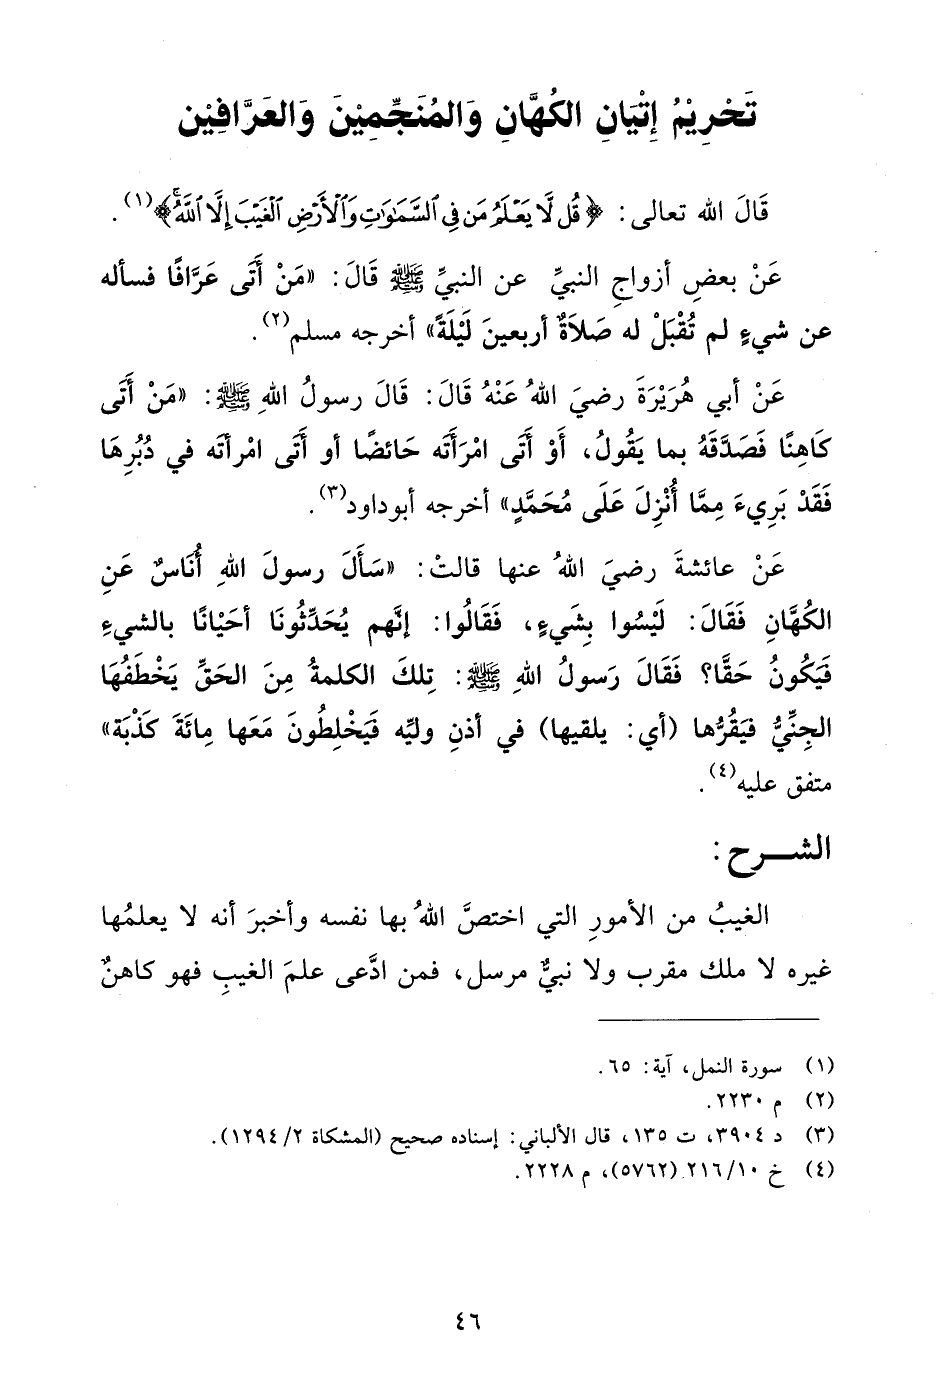 تَحْرِيْمُ إِتْيَانِ الكُهَّانِ وَالمُنَجِّمِيْنَ وَالعَرَّافِيْن
قَالَ الله تعالى: ﴿قُل لَّا يَعْلَمُ مَن فِي ٱلسَّمَٰوَٰتِ وَٱلْأَرْضِ ٱلْغَيْبَ إِلَّا ٱللَّهُ﴾(١).
عَنْ بعضِ أزواجِ النبيِّ عن النبيِّ ﷺ قَالَ: «مَنْ أَتَى عَرَّافًا فسأله
عن شيءٍ لم تُقْبَلْ له صَلاَةٌ أربعينَ لَيْلَةً» أخرجه مسلم(٢).
عَنْ أبي هُرَيْرَةَ رضيَ اللهُ عَنْهُ قَالَ: قَالَ رسولُ اللهِ ﷺ: «مَنْ أَتَى
كَاهِنًا فَصَدَّقَهُ بما يَقُولُ، أَوْ أَتَى امْرَأَتَه حَائضًا أو أَتَى امْرأتَه في دُبُرِهَا
فَقَدْ بَرِيءَ مِمَّا أُنْزِلَ عَلَى مُحَمَّدٍ» أخرجه أبوداود(٣).
عَنْ عائشةَ رضيَ اللهُ عنها قالتْ: «سَأَلَ رسولَ اللهِ أُنَاسٌ عَنِ
الكُهَّانِ فَقَالَ: لَيْسُوا بِشَيءٍ، فَقَالُوا: إنَّهم يُحَدِّثُونَا أحَيْانًا بالشيءِ
فَيَكُونُ حَقَّا؟ فَقَالَ رَسولُ اللهِ ﷺ: تِلكَ الكلمةُ مِنَ الحَقِّ يَخْطَفُهَا
الجِنِّيُّ فيَقُرُّها (أي: يلقيها) في أذنِ وليِّه فَيَخْلِطُونَ مَعَها مِائَةَ كَذْبَة»
متفق عليه(٤).
الشـــرح:
الغيبُ من الأمورِ التي اختصَّ اللهُ بها نفسه وأخبرَ أنه لا يعلمُها
غيره لا ملك مقرب ولا نبيٌّ مرسل، فمن ادَّعى علمَ الغيبِ فهو كاهنٌ
(١) سورة النمل، آية: ٦٥.
(٢) م ٢٢٣٠.
(٣) د ٣٩٠٤، ت ١٣٥، قال الألباني: إسناده صحيح (المشكاة ٢/ ١٢٩٤).
(٤) خ ١٠/ ٢١٦ (٥٧٦٢)، م ٢٢٢٨.
٤٦